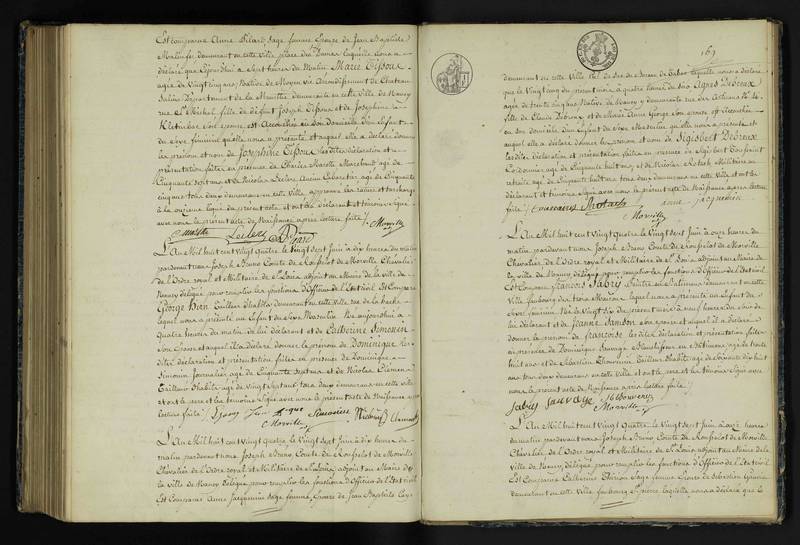 Est comparue Anne Pilard sage femme Epouse de Jean Baptiste
demeurant en cette ville place des Dames laquelle nous a
déclaré que a Sept heures du Matin Marie Tissoux
agée de vingt cinq ans Native de Moyen vic arrondissement de Chateau
Salins Département de la Meurthe demeurante en cette ville de Nancy
rue St Michel fille de défunt Joseph Tissoux et de Josephine
son epouse est accouchée en son Domicile d'un Enfant
du Sexe féminin qu'elle nous a présenté et auquel elle a déclaré donner
les prénom et nom de Josephine Tissoux lesdites déclaration et
présentation faites en présence de Charles Marchand agé de
Cinquante sept ans et de Nicolas Leclerc agé de Cinquante
cinq ans tous deux demeurans en cette ville
à la onzieme ligne du présent acte et ont la déclarante et témoins signé
avec nous le présent acte de Naissance après lecture faite /.
Leclerc Morville
L'An Mil huit cent Vingt Quatre le Vingt Sept Juin à dix heures du matin
pardevant nous Joseph Bruno Comte de Rousselot de Morville Chevalier
de l'Ordre royal et Militaire de St Louis adjoint au Maire de la ville de
Nancy Délégué pour remplir les fonctions d'Officier de l'Etat civil Est Comparu
George Hien Tailleur d'habits demeurant en cette ville rue de la hache
lequel nous a présenté un Enfant du Sexe Masculin Né aujourd'hui à
quatre heures du matin de lui déclarant et de Catherine Simonin
son Epouse et auquel il a déclaré donner le prénom de Dominique les
dites déclaration et présentation faites en présence de Dominique
Simonin Journalier agé de Cinquante Sept ans et de Nicolas Clement
Tailleur d'habits agé de Vingt Sept ans tous deux demeurans en cette ville
et ont le pere et les témoins Signé avec nous le présent acte de Naissance après
lecture faite /.
Morville
L'An Mil huit cent Vingt Quatre le Vingt Sept Juin à dix heures du
matin pardevant nous Joseph Bruno Comte de Rousselot de Morville
Chevalier de l'Ordre royal et Militaire de St Louis adjoint au Maire de
la ville de Nancy Délégué pour remplir les fonctions d'Officier de l'Etat civil
Est Comparue Anne Jacquemin Sage femme Epouse de Jean Baptiste
169
demeurant en cette Ville laquelle nous a déclaré
que le Vingt cinq du present mois à quatre heures du soir Agnès Debreux
agée de trente cinq ans Native de Nancy y demeurante rue des
fille de Claude Debreux et de Marie Anne George son epouse est accouchée
en son domicile d'un Enfant du Sexe Masculin qu'elle nous a présenté et
auquel elle a déclaré donner les prénom et nom de Sigisbert Debreux
lesdites déclaration et présentation faites en présence de Sigisbert
Cordonnier agé de Cinquante huit ans et de Nicolas Militaire en
retraite agé de Cinquante huit ans tous deux demeurans en cette Ville et ont la
déclarante et témoins Signé avec nous le présent acte de Naissance après lecture
faite /. anne jacquemin
Morville
L'An Mil huit cent Vingt Quatre le Vingt Sept Juin à onze heures du
matin pardevant nous Joseph Bruno Comte de Rousselot de Morville
Chevalier de l'Ordre royal et Militaire de St Louis adjoint au Maire de
la ville de Nancy Délégué pour remplir les fonctions d'Officier de l'Etat civil
Est Comparu François Sabris demeurant en cette
Ville faubourg des trois Maisons lequel nous a présenté un Enfant du
Sexe féminin Né le Vingt Six du present mois à neuf heures du soir de
lui déclarant et de Jeanne Sanson son epouse et auquel il a déclaré
donner le prénom de françoise lesdites déclaration et présentation faites
en présence de Dominique Sauvage agé de trente
huit ans et de Sébastien Thouvenin Tailleur d'habits agé de Soixante dix huit
ans tous deux demeurans en cette ville et ont le pere et les témoins Signé avec
nous le présent acte de Naissance après lecture faite /.
Sabris Sauvage
Morville
L'An Mil huit cent Vingt Quatre le Vingt Sept Juin à onze heures
du matin pardevant nous Joseph Bruno Comte de Rousselot de Morville
Chevalier de l'Ordre royal et Militaire de St Louis adjoint au Maire de la
ville de Nancy Délégué pour remplir les fonctions d'Officier de l'Etat civil
Est Comparue Catherine Thirion Sage femme Epouse de Sebastien
demeurant en cette Ville faubourg St pierre laquelle nous a déclaré que le